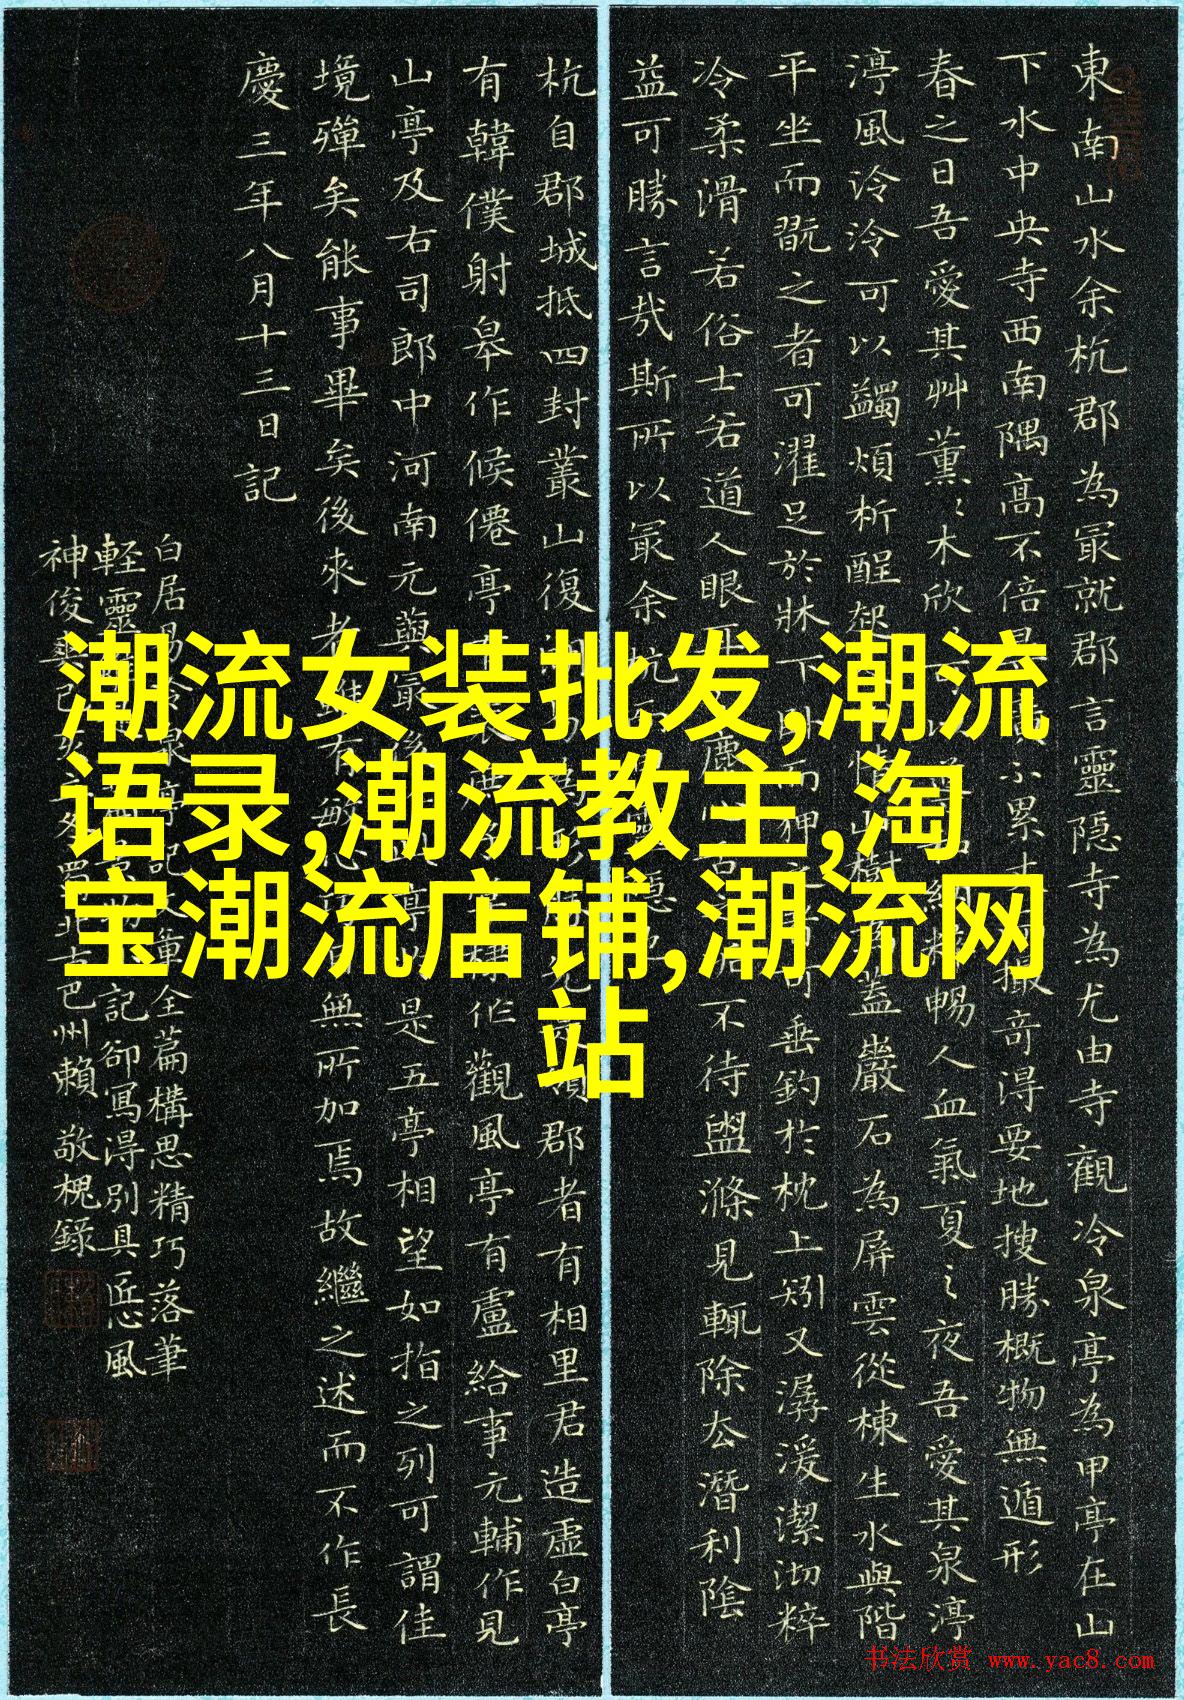 東南山水余杭郡為冣就郡言靈隱寺為尤由寺觀冷泉亭為甲亭在山
下水中央寺西南隅高不倍廣不累撮奇得要地搜勝概物無遁形
春之日吾愛其艸薰〻木欣暢人血氣夏之夜吾愛其泉渟
渟風泠泠可以蠲煩析酲起蓋巖石為屏雲從棟生水與階
平坐而翫之者可濯足於牀下臥而狎之可垂釣於枕上矧又潺湲潔沏粹
冷柔滑若俗士若道人眼耳不待盥滌見輒除去潛利陰
益可勝言哉斯所以冣余杭
杭自郡城抵四封叢山復郡者有相里君造虛白亭
有韓僕射皋作候僊亭作觀風亭有盧給事元輔作見
山亭及右司郎中河南元藇最後是五亭相望如指之列可謂佳
境殫矣能事畢矣後來者有敏心無所加焉故繼之述而不作長
慶三年八月十三日記
白居易文章全篇構思精巧落筆
軽靈記卻寫得別具匠心風
神俊蜀北古巴州賴敬槐錄
潮流女装批发,潮流
语录,潮流教主,淘
宝潮流店铺,潮流网
站
书法欣赏 www.yac8.com